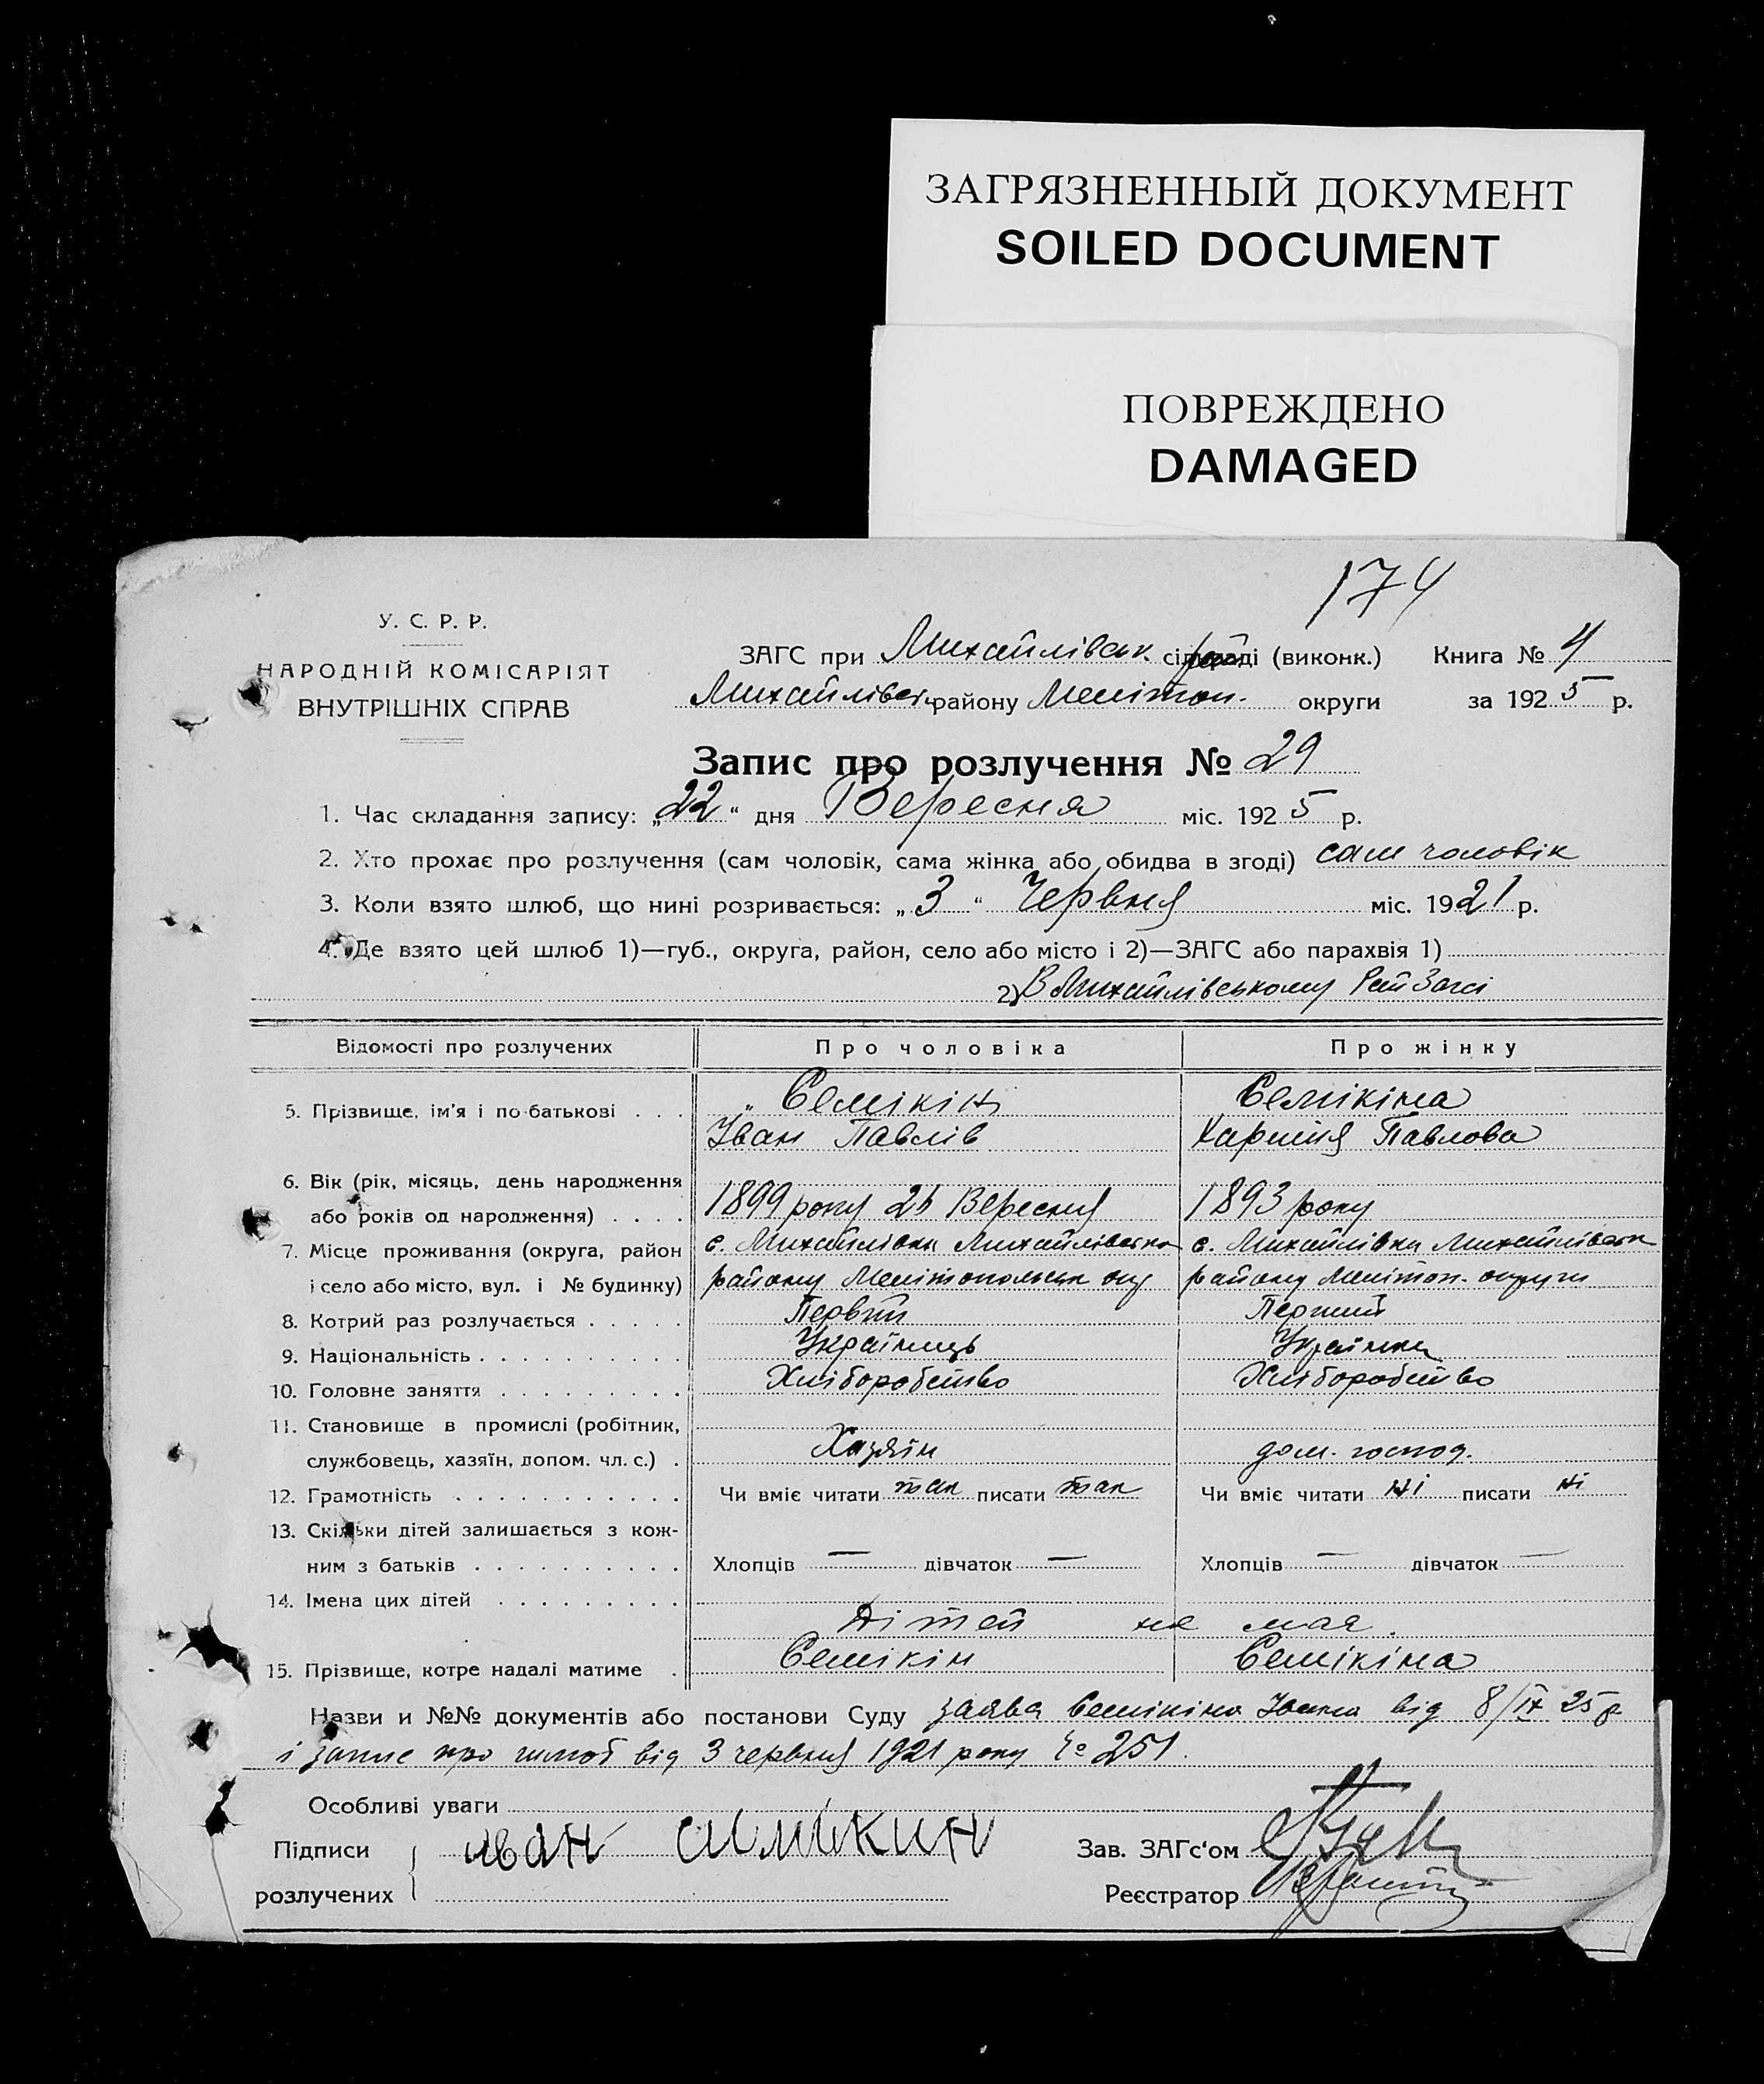 ЗАГРЯЗНЕННЫЙ ДОКУМЕНТ
SOILED DOCUMENT
ПОВРЕЖДЕНО
DAMAGED
174
У. С. Р. Р.
НАРОДНІЙ КОМІСАРІЯТ
ВНУТРІШНІХ СПРАВ
ЗАГС при Михайлівськ. сільраді (виконк.) Книга № 4
Михайлівськ. району Мелітоп. округи за 1925 р.
Запис про розлучення № 29
1. Час складання запису: „22" дня Вересня міс. 1925 р.
2. Хто прохає про розлучення (сам чоловік, сама жінка або обидва в згоді) сам чоловік
3. Коли взято шлюб, що нині розривається: „3" Червня міс. 1921 р.
4. Де взято цей шлюб 1)—губ., округа, район, село або місто і 2)—ЗАГС або парахвія 1)
2) В Михайлівському РайЗагсі
Відомості про розлучених Про чоловіка Про жінку
5. Прізвище, ім'я і по-батькові . . . Семікін Семікіна
Іван Павлів Павлова
6. Вік (рік, місяць, день народження
або років од народження) . . . . 1899 року 26 Вересня 1893 року
7. Місце проживання (округа, район с. Михайлівка Михайлівсько с. Михайлівка Михайлівськ
і село або місто, вул. і № будинку) району Мелітопольськ окр району Мелітоп. округи
8. Котрий раз розлучається . . . . . Первий Перший
9. Національність . . . . . . . . . . Українець Українка
10. Головне заняття . . . . . . . . . Хліборобство Хліборобство
11. Становище в промислі (робітник,
службовець, хазяїн, допом. чл. с.) . Хазяїн дом. господ.
12. Грамотність . . . . . . . . . . . Чи вміє читати так писати так Чи вміє читати ні писати ні
13. Скільки дітей залишається з кож-
ним з батьків . . . . . . . . . . Хлопців — дівчаток — Хлопців — дівчаток —
14. Імена цих дітей . . . . . . . . .
Дітей не має.
15. Прізвище, котре надалі матиме . Семікін Семікіна
Назви и №№ документів або постанови Суду заява Семікіна Івана від 8/IX 25 р
і запис про шлюб від 3 червня 1921 року № 251.
Особливі уваги
Підписи иван Зав. ЗАГс'ом
розлучених Реєстратор